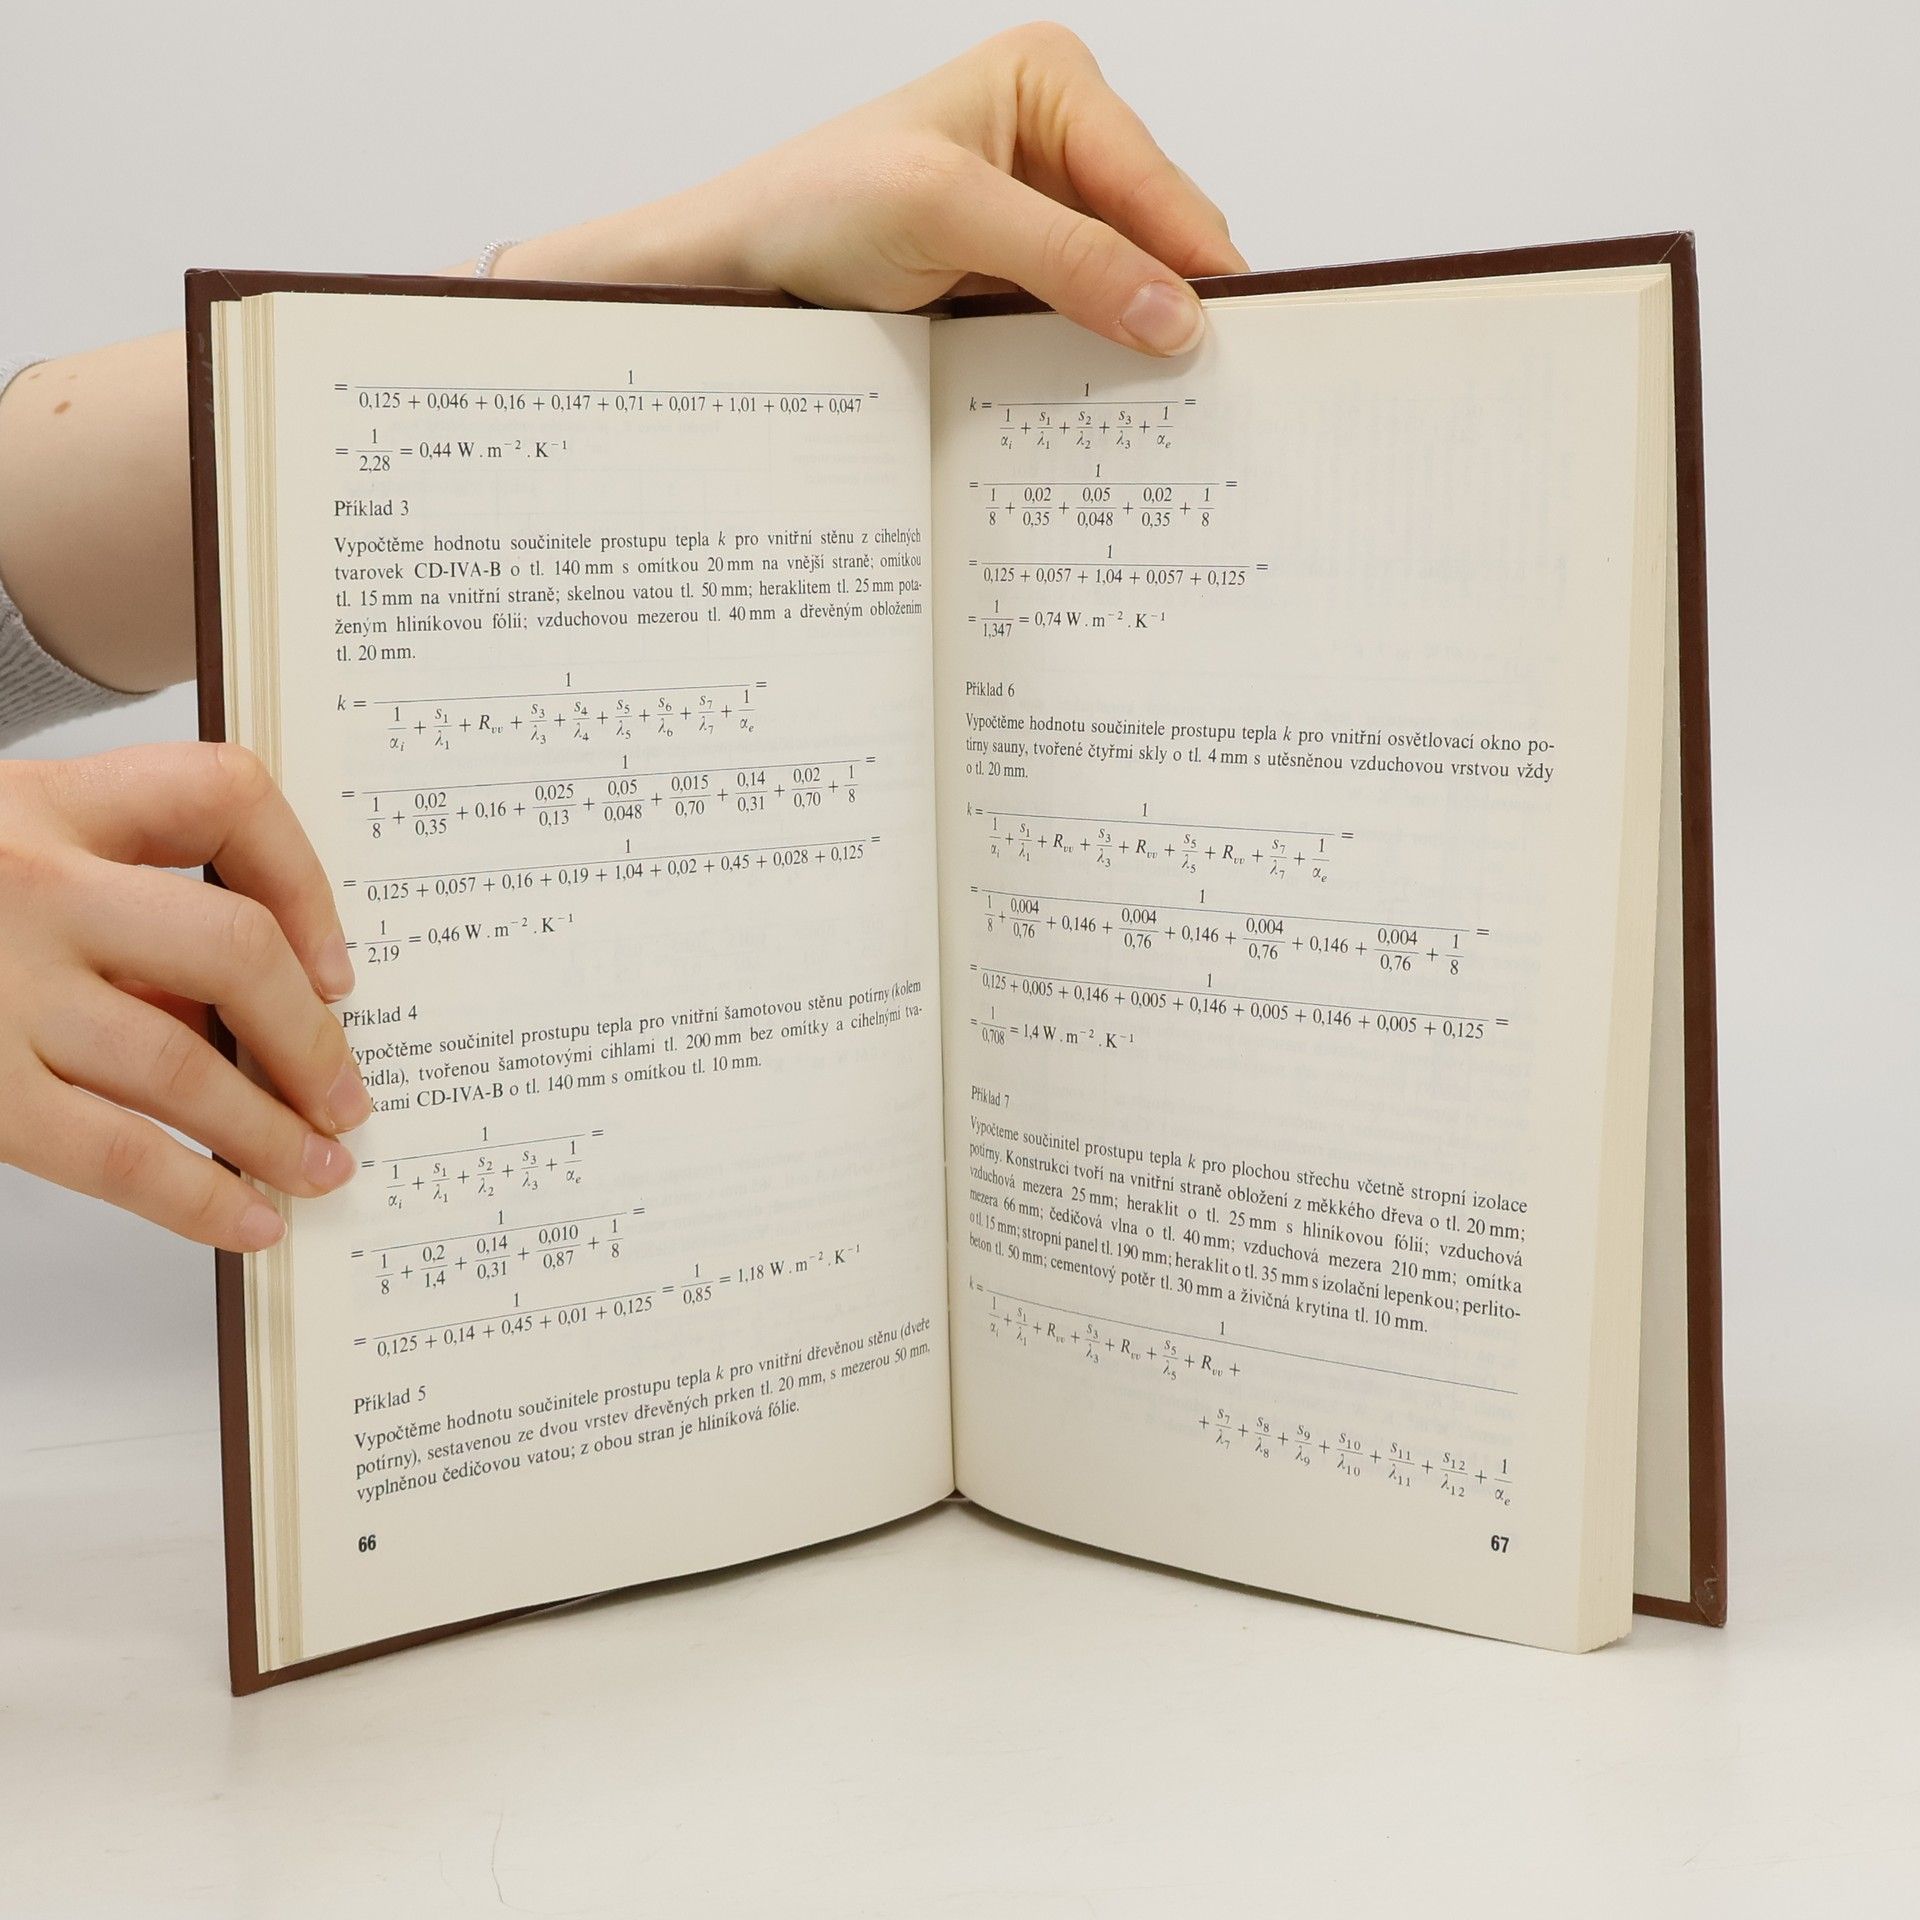 = 1 / (0,125 + 0,046 + 0,16 + 0,147 + 0,71 + 0,017 + 1,01 + 0,02 + 0,047) =
= 1 / 2,28 = 0,44 W . m⁻² . K⁻¹
Příklad 3
Vypočtěme hodnotu součinitele prostupu tepla k pro vnitřní stěnu z cihelných
tvarovek CD-IVA-B o tl. 140 mm s omítkou 20 mm na vnější straně; omítkou
tl. 15 mm na vnitřní straně; skelnou vatou tl. 50 mm; heraklitem tl. 25 mm pota-
ženým hliníkovou fólií; vzduchovou mezerou tl. 40 mm a dřevěným obložením
tl. 20 mm.
k = 1 / (1/αᵢ + s₁/λ₁ + Rᵥᵥ + s₃/λ₃ + s₄/λ₄ + s₅/λ₅ + s₆/λ₆ + s₇/λ₇ + 1/αₑ) =
= 1 / (1/8 + 0,02/0,35 + 0,16 + 0,025/0,13 + 0,05/0,048 + 0,015/0,70 + 0,14/0,31 + 0,02/0,70 + 1/8) =
= 1 / (0,125 + 0,057 + 0,16 + 0,19 + 1,04 + 0,02 + 0,45 + 0,028 + 0,125) =
= 1 / 2,19 = 0,46 W . m⁻² . K⁻¹
Příklad 4
ypočtěme součinitel prostupu tepla pro vnitřní šamotovou stěnu potírny (kolem
pidla), tvořenou šamotovými cihlami tl. 200 mm bez omítky a cihelnými tva-
kami CD-IVA-B o tl. 140 mm s omítkou tl. 10 mm.
= 1 / (1/αᵢ + s₁/λ₁ + s₂/λ₂ + s₃/λ₃ + 1/αₑ) =
= 1 / (1/8 + 0,2/1,4 + 0,14/0,31 + 0,010/0,87 + 1/8) =
= 1 / (0,125 + 0,14 + 0,45 + 0,01 + 0,125) = 1 / 0,85 = 1,18 W . m⁻² . K⁻¹
Příklad 5
Vypočtěme hodnotu součinitele prostupu tepla k pro vnitřní dřevěnou stěnu (dveře
potírny), sestavenou ze dvou vrstev dřevěných prken tl. 20 mm, s mezerou 50 mm,
vyplněnou čedičovou vatou; z obou stran je hliníková fólie.
66
k = 1 / (1/αᵢ + s₁/λ₁ + s₂/λ₂ + s₃/λ₃ + 1/αₑ) =
= 1 / (1/8 + 0,02/0,35 + 0,05/0,048 + 0,02/0,35 + 1/8) =
= 1 / (0,125 + 0,057 + 1,04 + 0,057 + 0,125) =
= 1 / 1,347 = 0,74 W . m⁻² . K⁻¹
Příklad 6
Vypočtěme hodnotu součinitele prostupu tepla k pro vnitřní osvětlovací okno po-
tírny sauny, tvořené čtyřmi skly o tl. 4 mm s utěsněnou vzduchovou vrstvou vždy
o tl. 20 mm.
k = 1 / (1/αᵢ + s₁/λ₁ + Rᵥᵥ + s₃/λ₃ + Rᵥᵥ + s₅/λ₅ + Rᵥᵥ + s₇/λ₇ + 1/αₑ) =
= 1 / (1/8 + 0,004/0,76 + 0,146 + 0,004/0,76 + 0,146 + 0,004/0,76 + 0,146 + 0,004/0,76 + 1/8) =
= 1 / (0,125 + 0,005 + 0,146 + 0,005 + 0,146 + 0,005 + 0,146 + 0,005 + 0,125) =
= 1 / 0,708 = 1,4 W . m⁻² . K⁻¹
Příklad 7
Vypočteme součinitel prostupu tepla k pro plochou střechu včetně stropní izolace
potírny. Konstrukci tvoří na vnitřní straně obložení z měkkého dřeva o tl. 20 mm;
vzduchová mezera 25 mm; heraklit o tl. 25 mm s hliníkovou fólií; vzduchová
mezera 66 mm; čedičová vlna o tl. 40 mm; vzduchová mezera 210 mm; omítka
o tl. 15 mm; stropní panel tl. 190 mm; heraklit o tl. 35 mm s izolační lepenkou; perlito-
beton tl. 50 mm; cementový potěr tl. 30 mm a živičná krytina tl. 10 mm.
k = 1 / (1/αᵢ + s₁/λ₁ + Rᵥᵥ + s₃/λ₃ + Rᵥᵥ + s₅/λ₅ + Rᵥᵥ +
+ s₇/λ₇ + s₈/λ₈ + s₉/λ₉ + s₁₀/λ₁₀ + s₁₁/λ₁₁ + s₁₂/λ₁₂ + 1/αₑ)
67